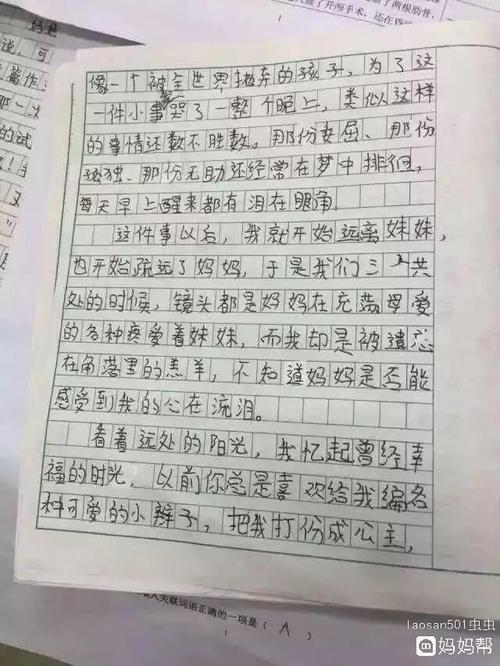 妈妈
说，可
篇作：
那一次
的试
了！
又
了开颅手术，还在昏
断了两根肋骨，
像一个被全世界抛弃的孩子，为了这
一件小事哭了一整个晚上，类似这样
的事情还数不胜数。那份委屈、那份
孤独、那份无助还经常在梦中排徊，
每天早上醒来都有泪在眼角。
这件事以后，我就开始远离妹妹，
也开始疏远了妈妈，于是我们三人共
处的时候，镜头都是妈妈在充满母爱
的各种疼爱着妹妹，而我却是被遗忘
在角落里的羔羊，不知道妈妈是否能
感受到我的心在流泪。
看着远处的阳光，我忆起曾经幸
福的时光，以前你总是喜欢给我编各
种可爱的小辫子，把我打份成公主，
入关联词语正确的一项是（ A ）
laosan501虫虫
妈妈帮